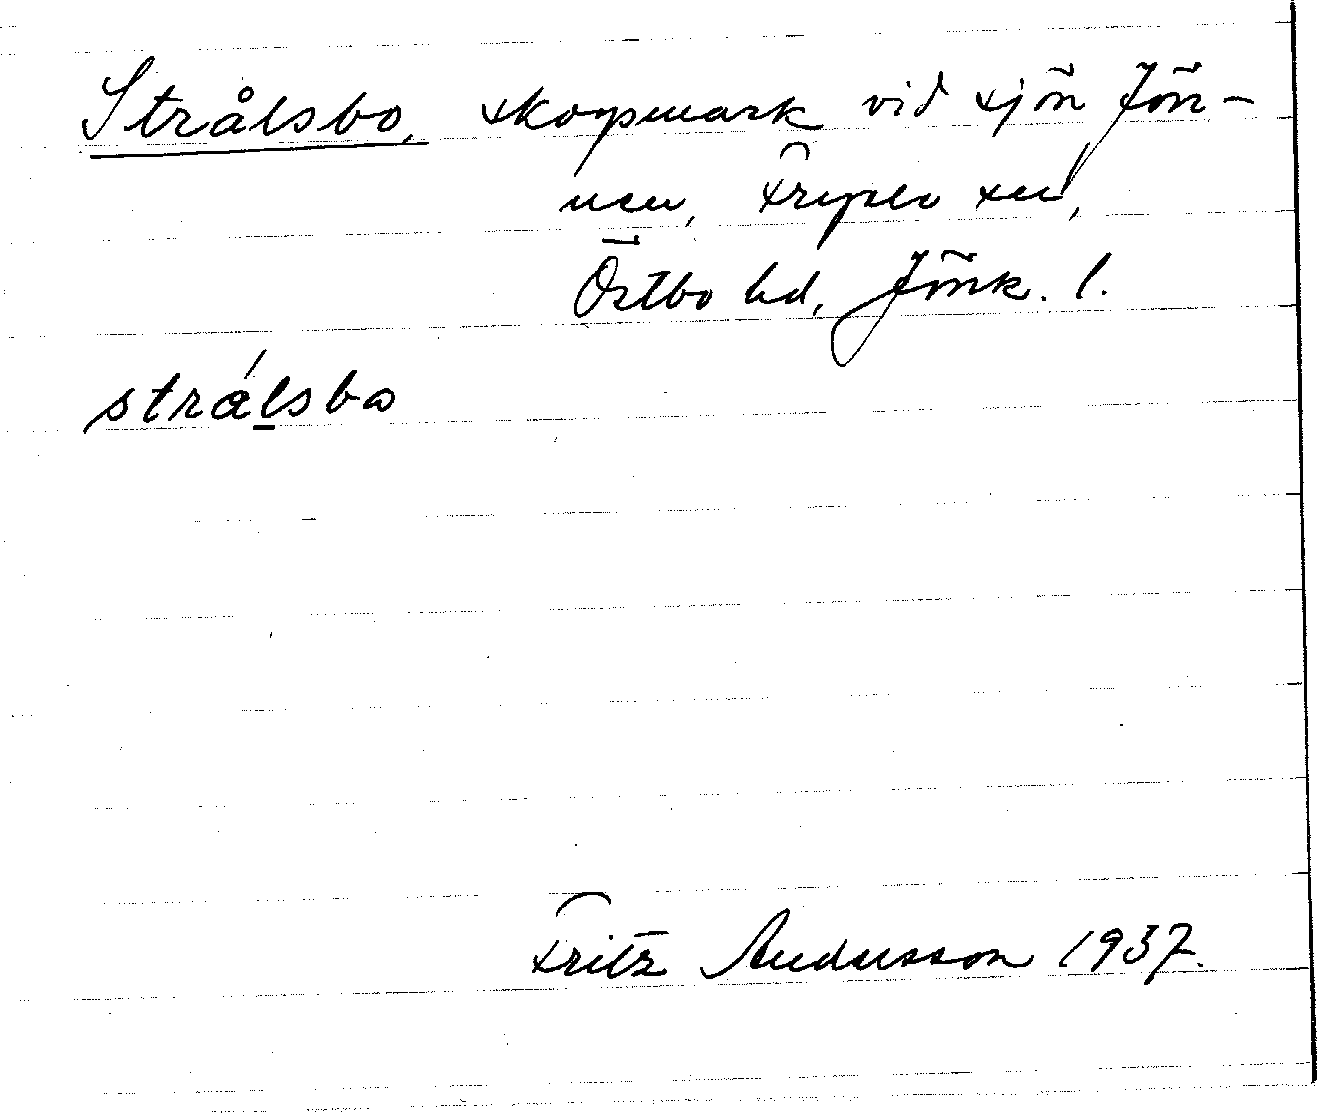 Strålsbo, skogsmark vid sjön Jön-
nen, Fryele sn,
Östbo hd, Jönk. l.
strálsbo
Fritz Andersson 1937.